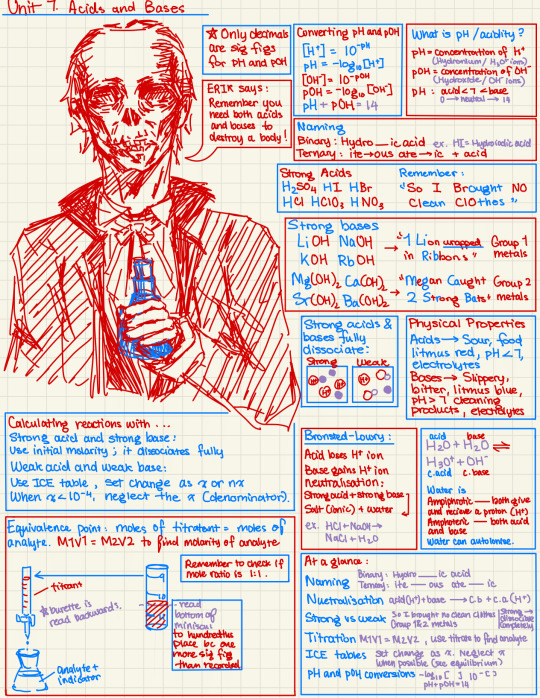 Unit 7. Acids and Bases
★ Only decimals
are sig figs
for pH and pOH
ERIK says:
Remember you
need both acids
and bases to
destroy a body!
Converting pH and pOH
[H⁺] = 10^-pH
pH = -log₁₀[H⁺]
[OH⁻] = 10^-pOH
pOH = -log₁₀[OH⁻]
pH + pOH = 14
What is pH /acidity?
pH = concentration of H⁺
(Hydronium/H₃O⁺ ions)
pOH = concentration of OH⁻
(Hydroxide/OH⁻ ions)
pH: acid < 7 < base
0 → neutral → 14
Naming
Binary: Hydro___ic acid ex. HI = Hydroiodic acid
Ternary: ite → ous ate → ic + acid
Strong Acids
H₂SO₄ HI HBr
HCl HClO₃ HNO₃
Remember:
"So I Brought NO
Clean ClOthes"
Strong bases
LiOH NaOH
KOH RbOH
→ "1 Lion wrapped
in Ribbons"
Group 1
metals
Mg(OH)₂ Ca(OH)₂
Sr(OH)₂ Ba(OH)₂
→ "Megan Caught
2 Strong Bats"
Group 2
metals
Strong acids &
bases fully
dissociate:
Strong Weak
H⁺ H⁺ H⁺ H⁺
Physical Properties
Acids → Sour, food
litmus red, pH<7,
electrolytes
Bases → Slippery,
bitter, litmus blue,
pH > 7 cleaning
products, electolytes
Calculating reactions with ...
Strong acid and strong base:
Use initial molarity; it dissociates fully
Weak acid and weak base:
Use ICE table, set change as x or nx
When x < 10⁻⁴, neglect the x (denominator).
Bronsted-Lowry:
Acid loses H⁺ ion
Base gains H⁺ ion
neutralisation:
Strong acid + strong base
↓
Salt (ionic) + water
ex. HCl + NaOH →
NaCl + H₂O
acid base
H₂O + H₂O ⇌
H₃O⁺ + OH⁻
c.acid c.base
Water is
Amphiprotic — both give
and recieve a proton (H⁺)
Amphoteric — both acid
and base
Water can autoionise.
Equivalence point: moles of titratent = moles of
analyte. M1V1 = M2V2 to find molarity of analyte
Remember to check if
mole ratio is 1:1.
titrant
★burette is
read backwards.
analyte +
indicator
- read
bottom of
miniscus
to hundredths
place bc one
more sig fig
than recorded
At a glance:
Naming Binary: Hydro___ic acid
Ternary: ite — ous ate — ic
Nuetralisation acid(H⁺)+base → c.b + c.a(H⁺)
Strong vs weak So I brought no clean clothes
Group 1&2 metals
Strong →
dissociate
completely
Titration M1V1 = M2V2, use titrate to find analyte
ICE tables Set change as x. Neglect x
when possible (see equilibrium)
pH and pOH conversions -log₁₀[ ] 10^-[ ]
pH + pOH = 14